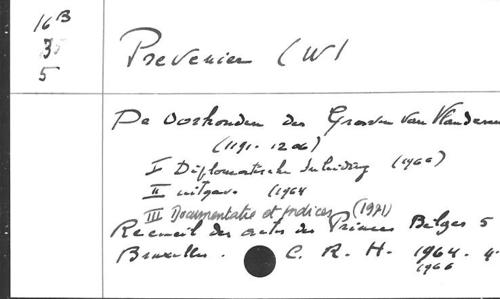 16 B
35
5
Prevenier (W)
De oorkonden der Graven van Vlaanderen
(1191-1206)
I Diplomatische Inleiding (1966)
II uitgave (1964
III Documentatie et Indices (1971)
Recueil des actes des Princes Belges 5
Bruxelles. C. R. H. 1964. 4°
1966